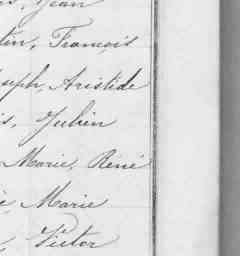 Jean
tin, François
seph, Aristide
is, Julien
Marie, René
é, Marie
, Victor